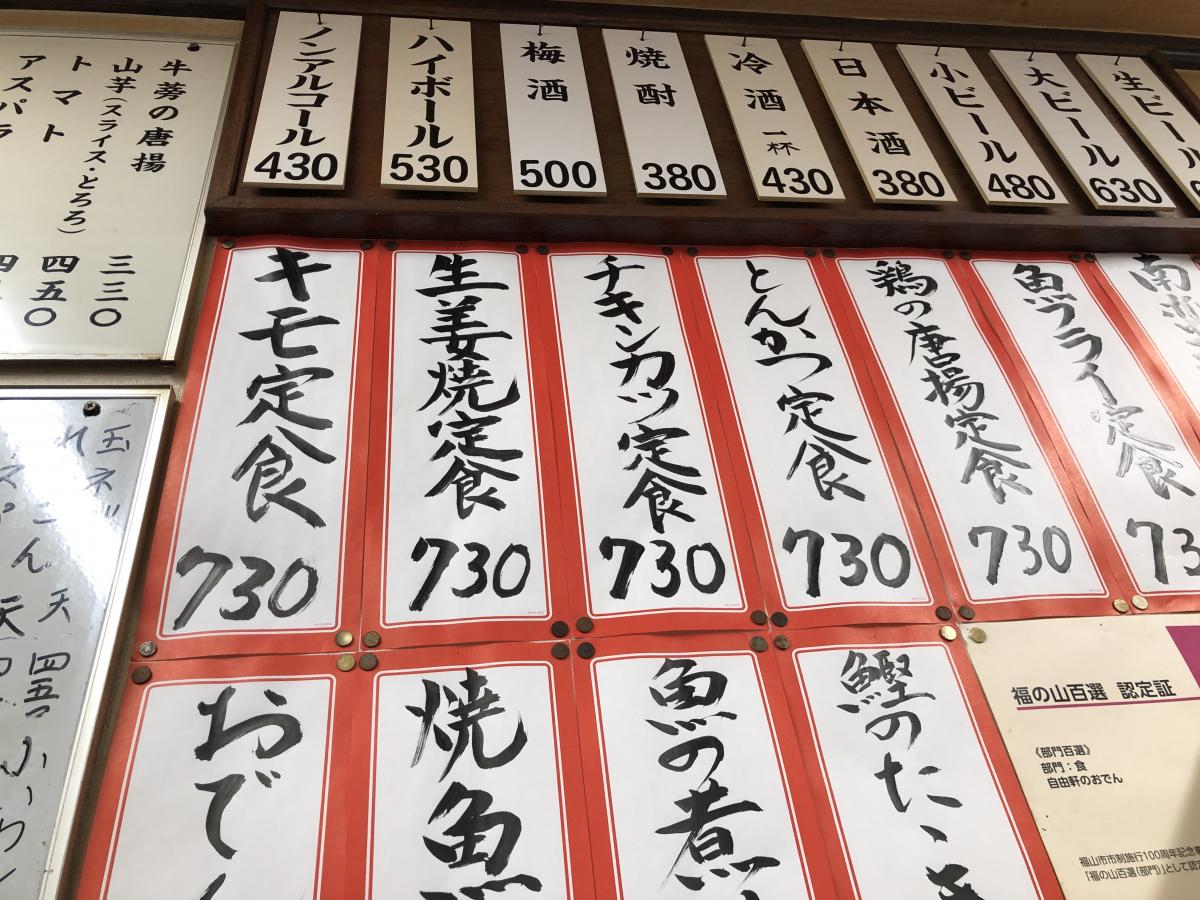 牛蒡の唐揚
山芋(スライス・とろろ) 三三〇
トマト 四五〇
アスパラ
ノンアルコール 430
ハイボール 530
梅酒 500
焼酎 380
冷酒 一杯 430
日本酒 380
小ビール 480
大ビール 630
生ビール
キモ定食 730
生姜焼定食 730
チキンカツ定食 730
とんかつ定食 730
鶏の唐揚定食 730
魚フライ定食 730
南
おでん
焼魚
魚の煮
鰹のたたき
玉ネギ
天 四五〇
福の山百選 認定証
《部門百選》
部門：食
自由軒のおでん
福山市市制施行100周年記念
「福の山百選(部門)」として認定